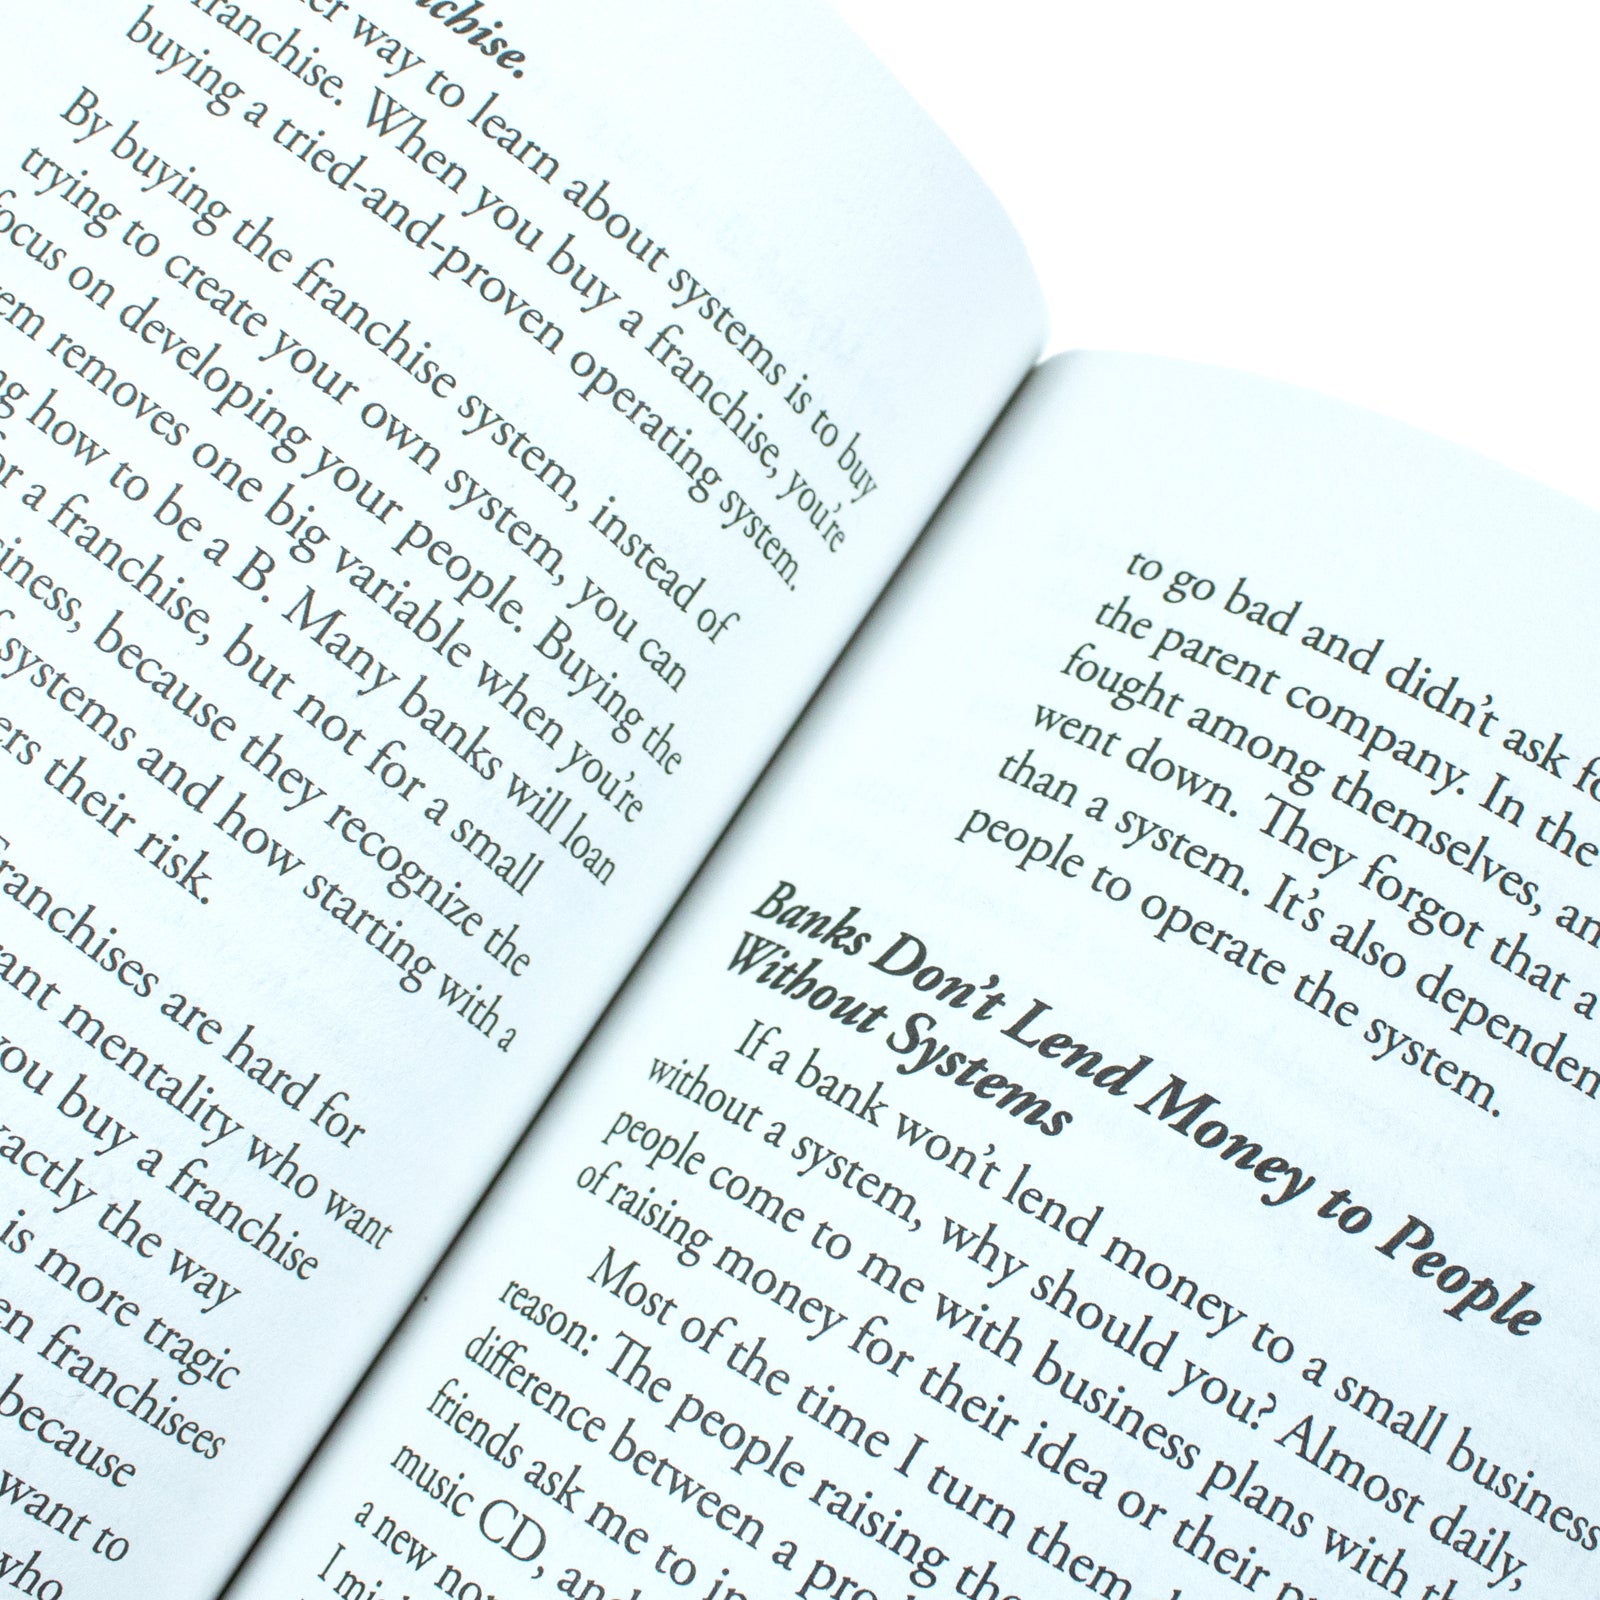 way to learn about systems is to buy
franchise. When you buy a franchise, you're
buying a tried-and-proven operating system.
By buying the franchise system, instead of
trying to create your own system, you can
focus on developing your people. Buying the
removes one big variable when you're
how to be a B. Many banks will loan
a franchise, but not for a small
because they recognize the
systems and how starting with a
their risk.
Franchises are hard for
mentality who want
you buy a franchise
the way
is more tragic
franchisees
because
want to
who
to go bad and didn't ask
the parent company. In the
fought among themselves,
went down. They forgot that a
than a system. It's also
people to operate the system.
Banks Don't Lend Money to People
Without Systems
If a bank won't lend money to a small business
without a system, why should you? Almost daily,
people come to me with business plans with
of raising money for their idea or their
Most of the time I turn them
reason: The people raising
difference between a
friends ask me to
music CD,
a new
I